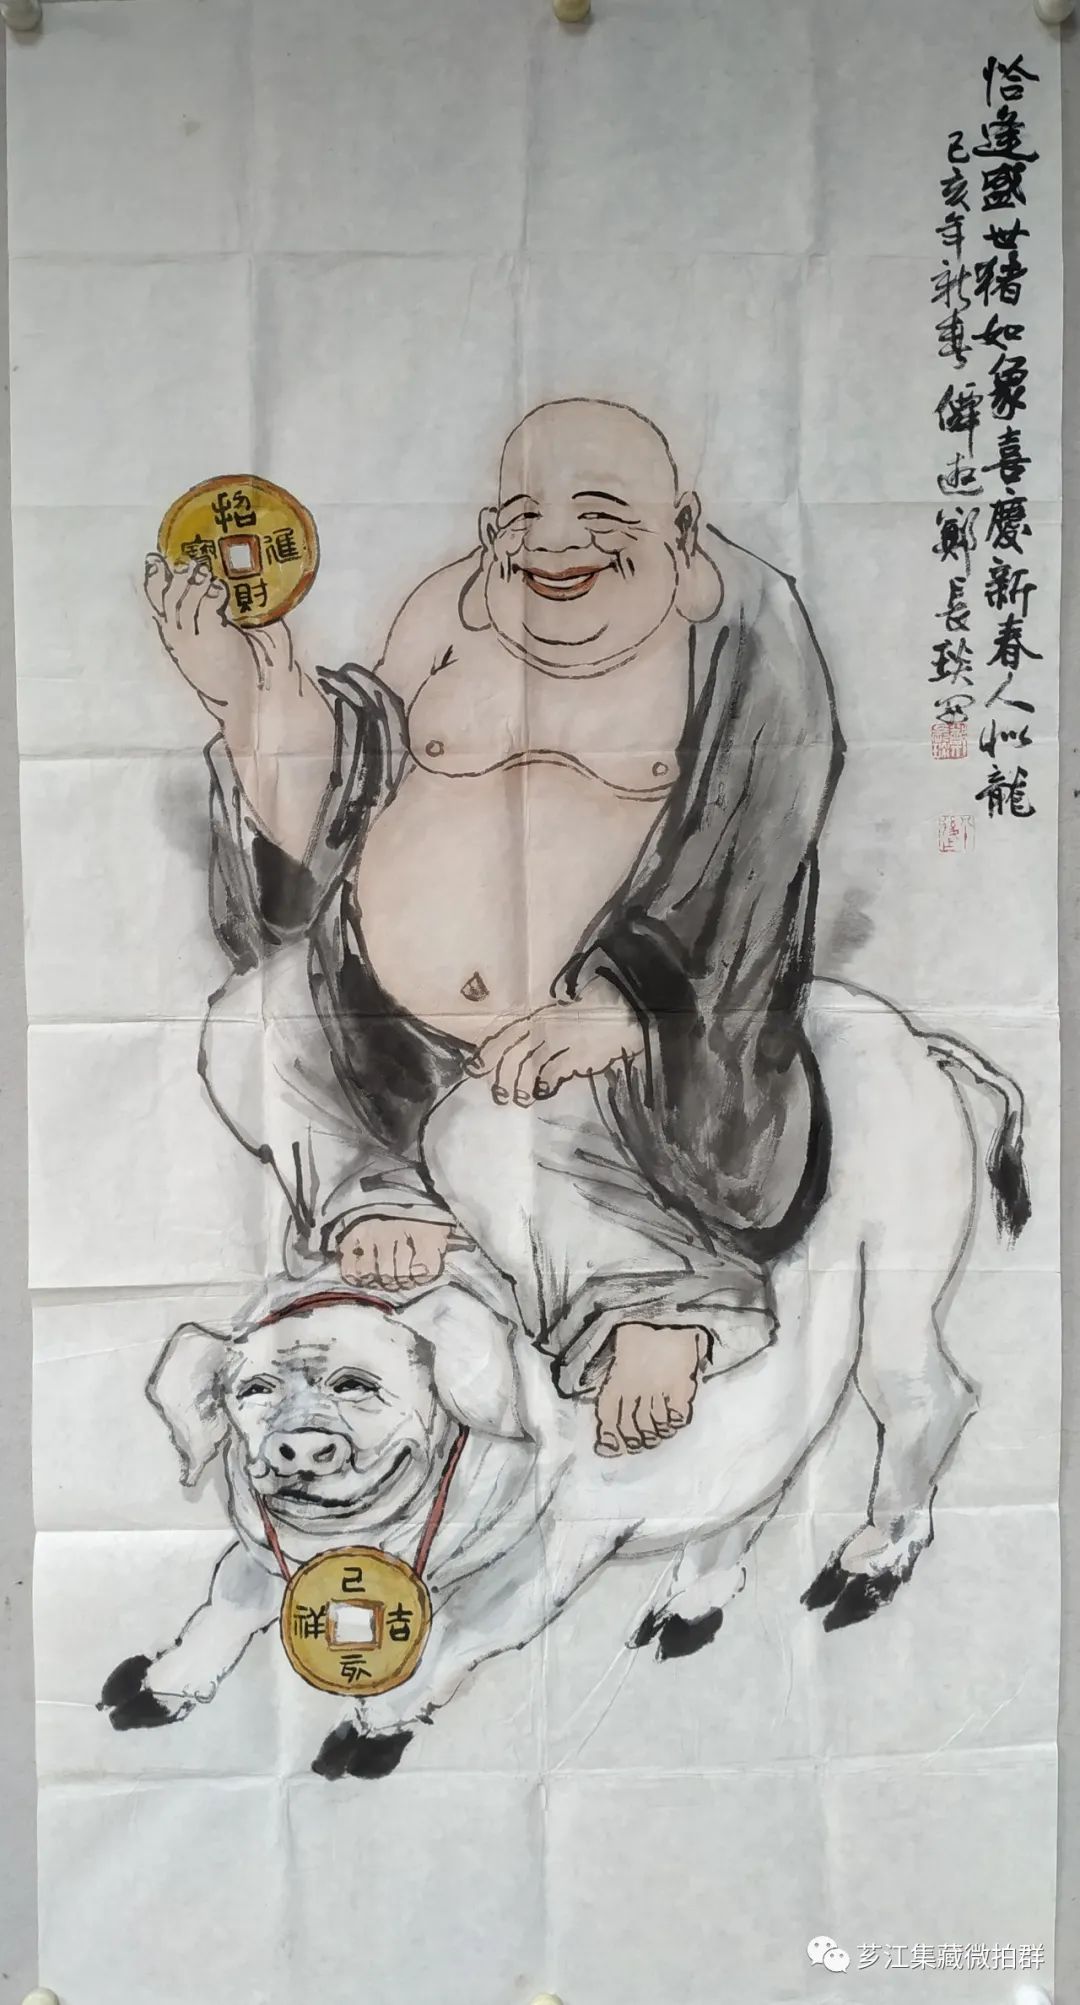 恰逢盛世猪如象喜慶新春人似龍
己亥年新春
鄭長琰写
招匯財寶
己吉亥祥
芗江集藏微拍群